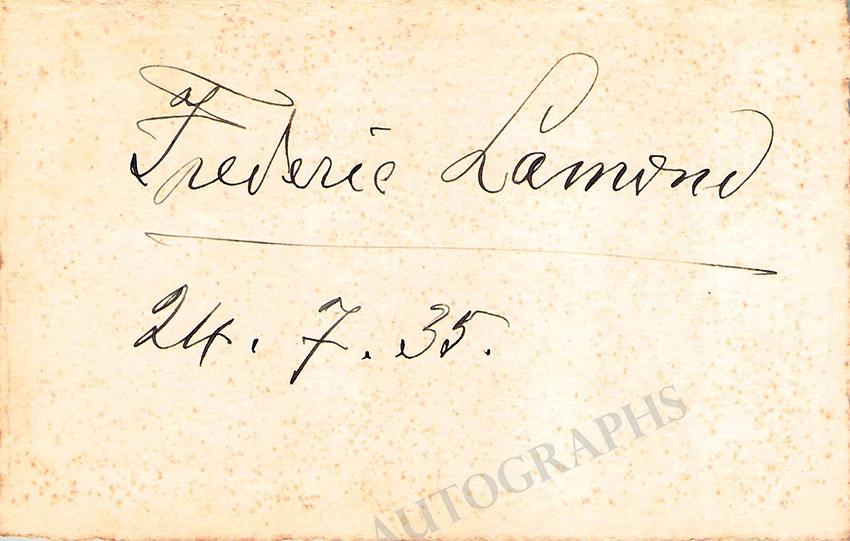 Frederic Lamond
24. 7. 35.
AUTOGRAPHS